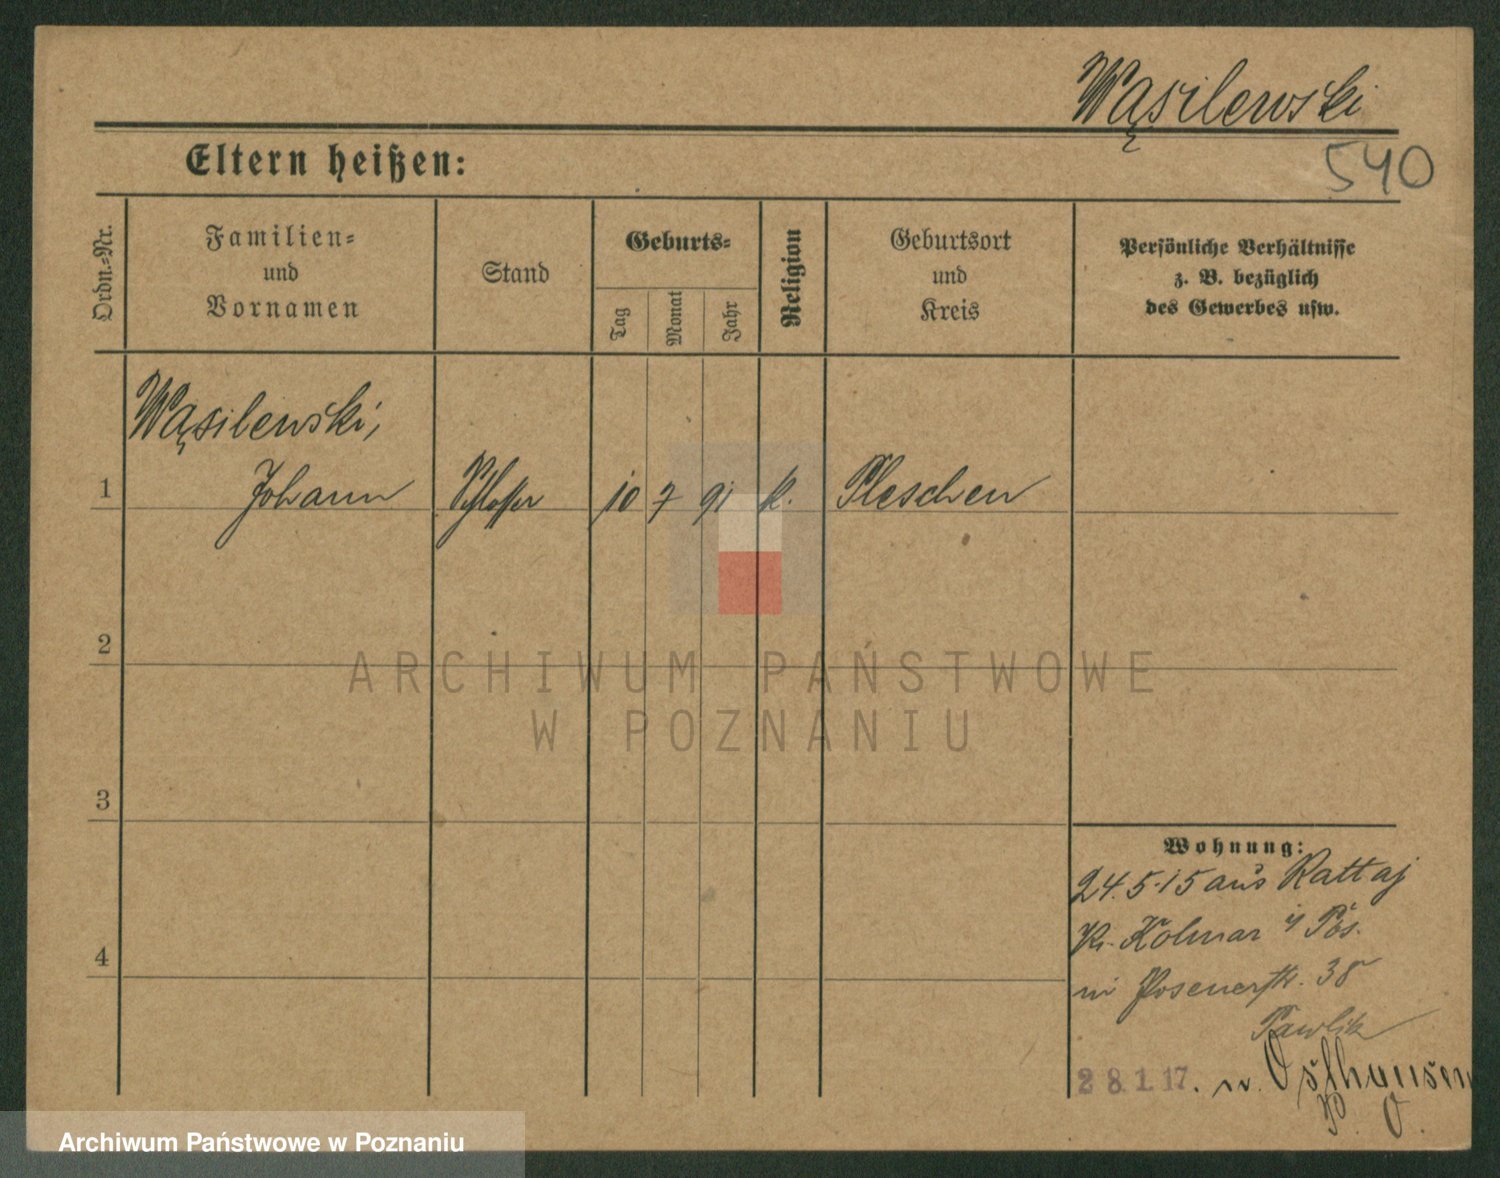 Wąsilewski
540
Eltern heißen:
Ordn.-Nr.
Familien-
und
Vornamen
Stand
Geburts-
Tag
Monat
Jahr
Religion
Geburtsort
und
Kreis
Persönliche Verhältnisse
z. B. bezüglich
des Gewerbes usw.
Wąsilewski,
1 Johann Schlosser 10 7 91 k. Pleschen
2
3
4
Wohnung:
24.5.15 aus Rattaj
Kr. Kolmar i/ Pos.
Posenerstr. 38
Pawlik
28.1.17. n.
ARCHIWUM PAŃSTWOWE
W POZNANIU
Archiwum Państwowe w Poznaniu